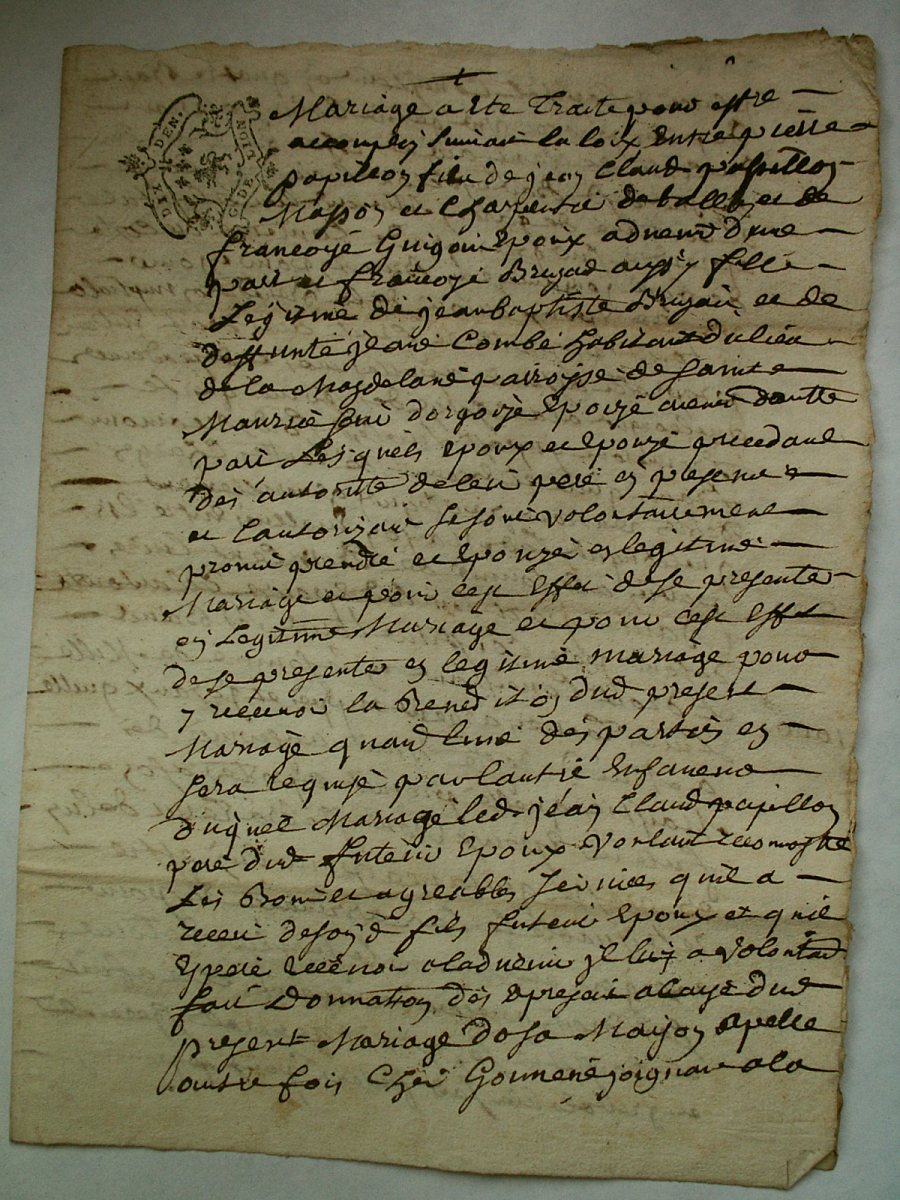 DIX DEN. NOIT G DE
Mariage a Ete Traite pour estre
accomply suivat la loix Entre pierre
papillon fils de jean Claud papillon
Masson et Charpentie de balla et de
francoyse Guigou Epoux advenir d'une
part et francoyse Brujas aussy fille
Legitime de jean baptiste Brujas et de
deffunte jeane Combe habitant du lieu
de la Magdelane parroisse de Sainte
Maurice Epouze avenir dautte
part Lesquels Epoux et Epouze procedant
des autorite de leur pere en presance
et lautorizan se sont volontairement
promis prendre et Epouzer en legitime
Mariage et pour cest Effet de se presenter
en Legitime Mariage et pour cest Effet
de se presenter en legitime mariage pour
y recevoir la Benediton dud present
Mariage quand lune des parties en
sera requise par lautre Enfaveur
duquel Mariage led. jean Claud papillon
pere dud futeur Epoux voulant recomoistre
Les Bons et agreables services quil a
receu de son d fils futeur Epoux et quil
Espere recevoir aladvenir jl luy a volontair
fait Donnation des apresant a cause dud
present Mariage de sa Mayson apelle
autre fois Chez joignant a la